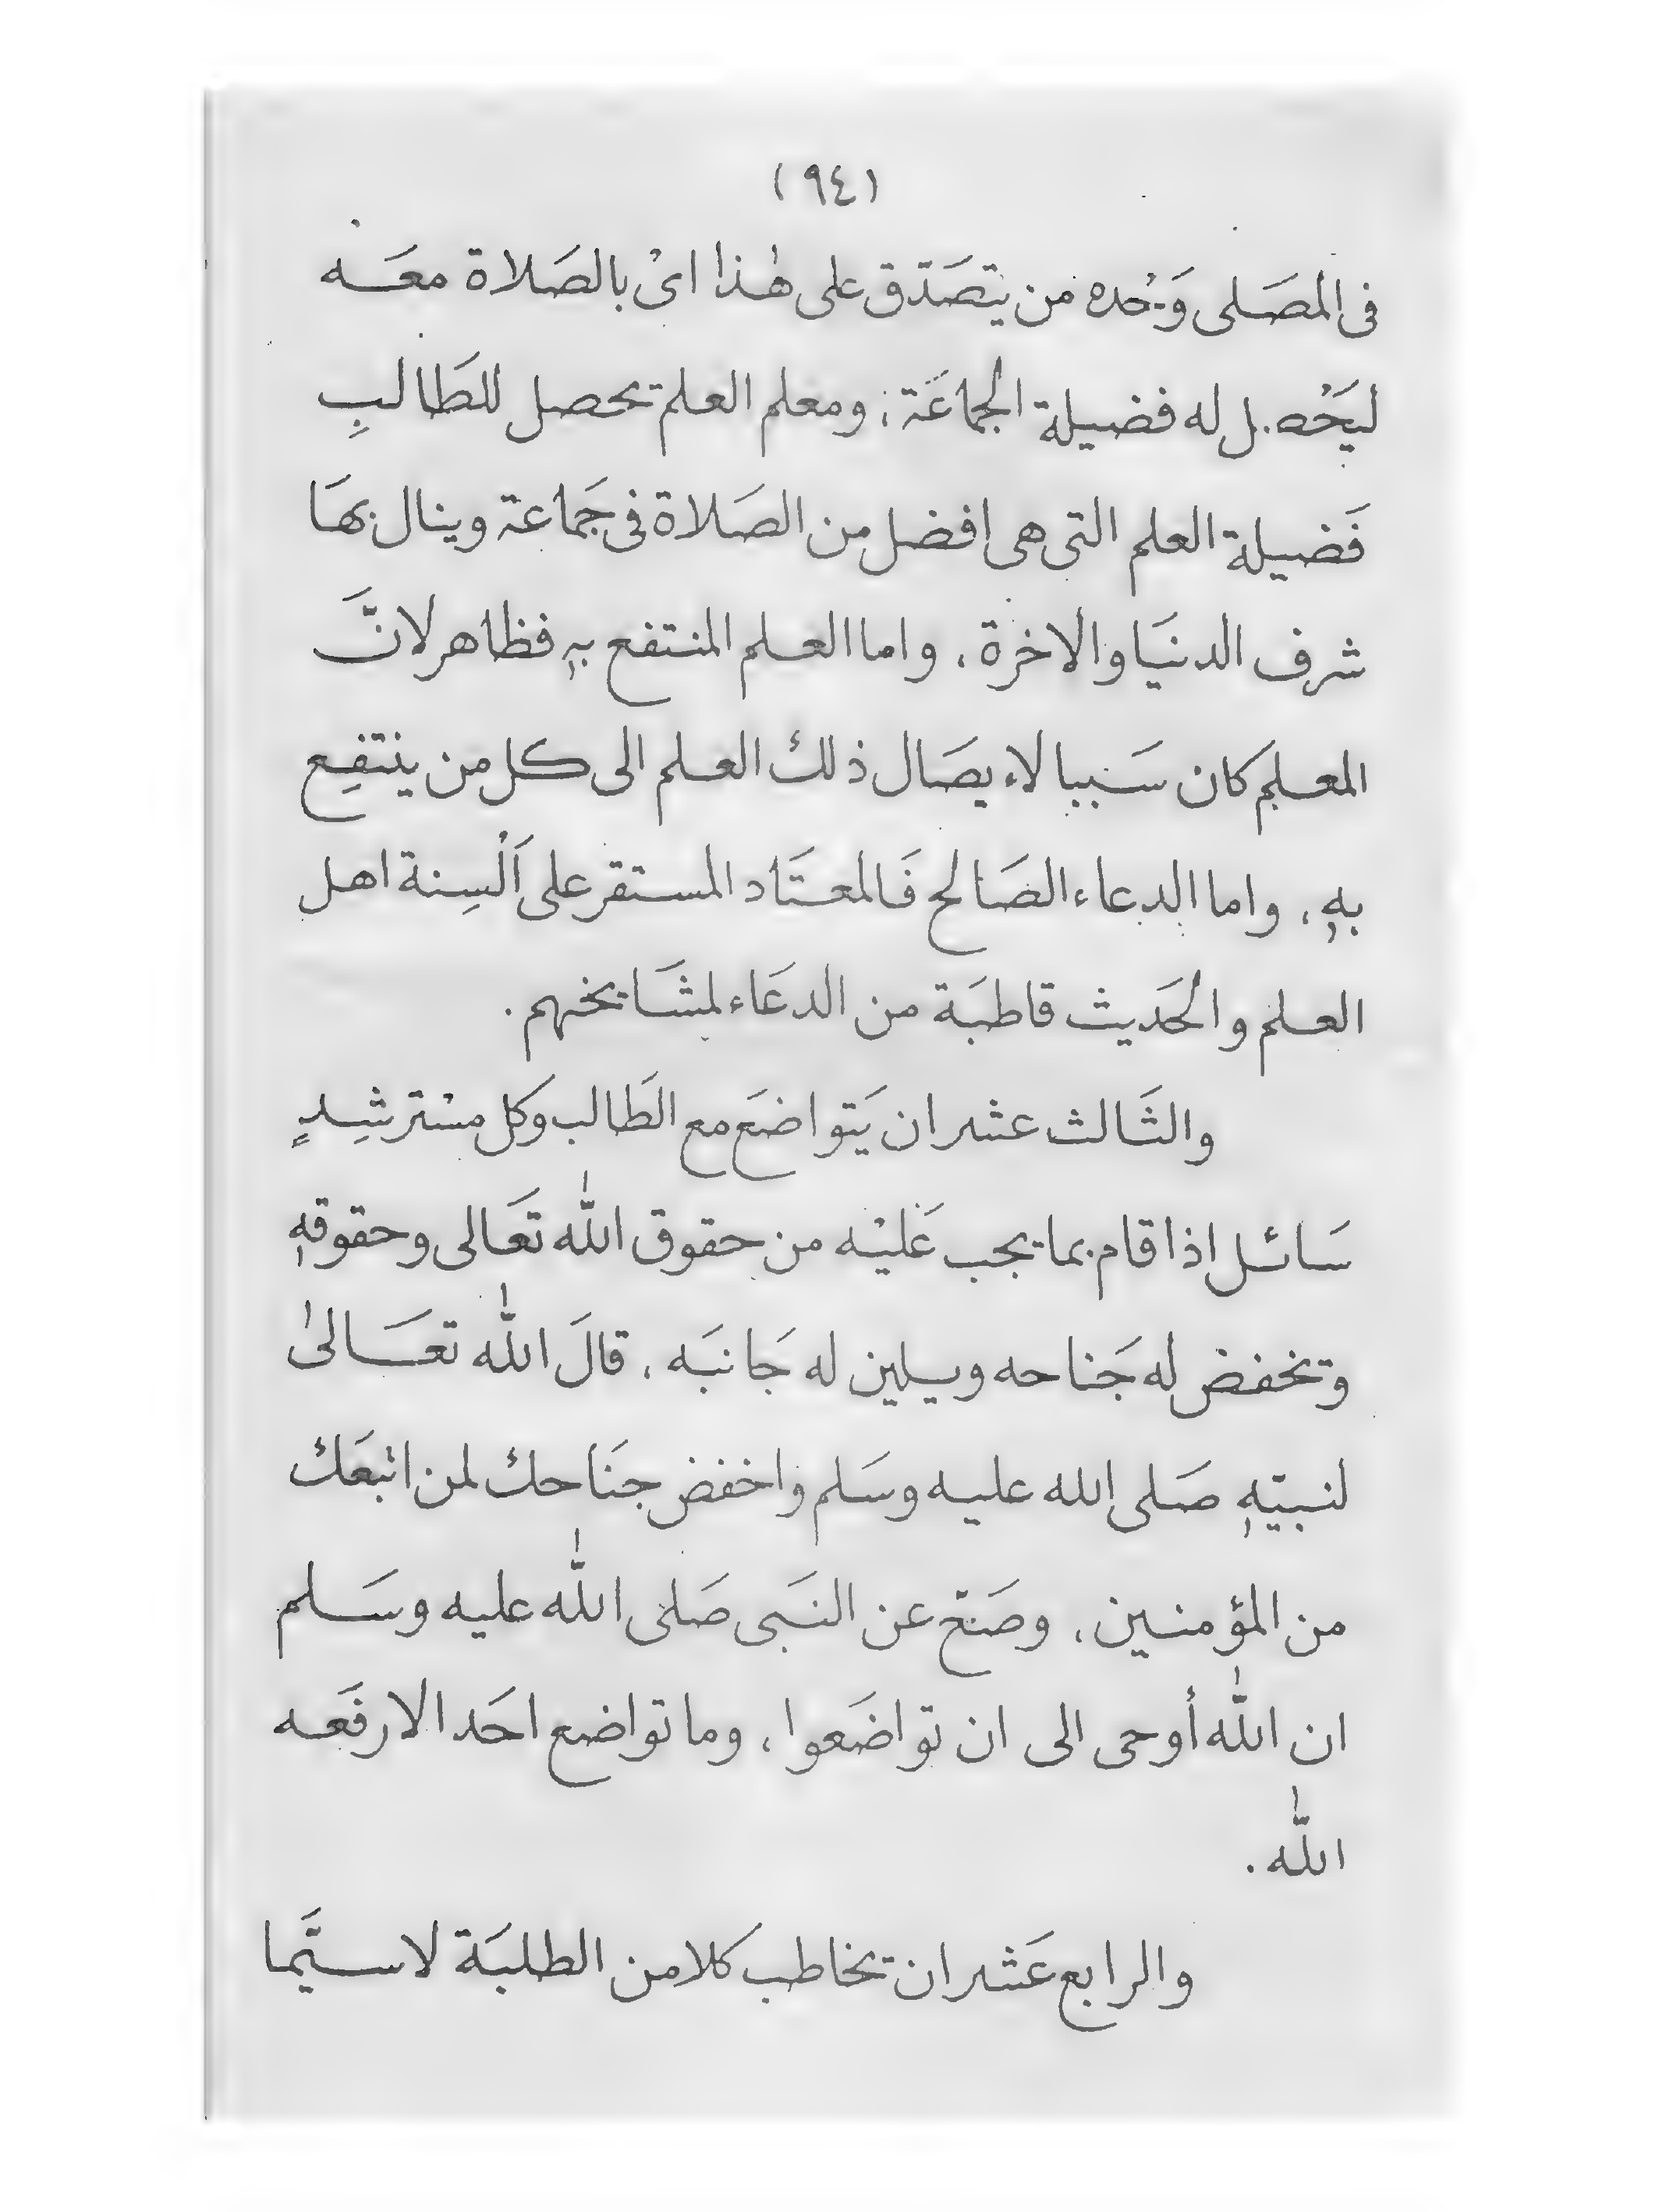 (٩٤)
فى المصَلى وَحْده من يتصَدّق على هٰذا اىْ بالصَلاة معَه
ليَحْصل له فضيلة الجماعَة، ومعلم العلم يحصل للطَالبِ
فَضيلة العلم التى هى افضل من الصَلاة فى جَماعة وينال بهَا
شرف الدنيَا والاخرة، واما العلم المنتفع بهٖ فظاهر لانَّ
المعلم كان سَببا لاءيصَال ذلك العلم الى كل من ينتفِع
بهٖ، واما الدعاء الصَالح فَالمعتَاد المستقر على اَلْسِنة اهل
العلم والحَديث قاطبَة من الدعَاء لمشَايخهم.
والثَالث عشر ان يَتواضَع مع الطَالب وكل مسْترشِدٍ
سَائل اذا قام بما يجب عَليْه من حقوق اللّٰه تعَالى وحقوقهٖ
وتخفض له جَناحه ويلين له جَانبَه، قالَ اللّٰه تعَالىٰ
لنبيّهٖ صَلى الله عليه وسَلم واخفض جنَاحك لمن اتبعَك
من المؤمنين، وصَحّ عن النبَى صَلى اللّٰه عليه وسَلم
ان اللّٰه أوحى الى ان تواضَعوا، وما تواضع احَد الا رفَعه
اللّٰه.
والرابع عَشر ان يخاطب كلا من الطلبَة لاسيَّما